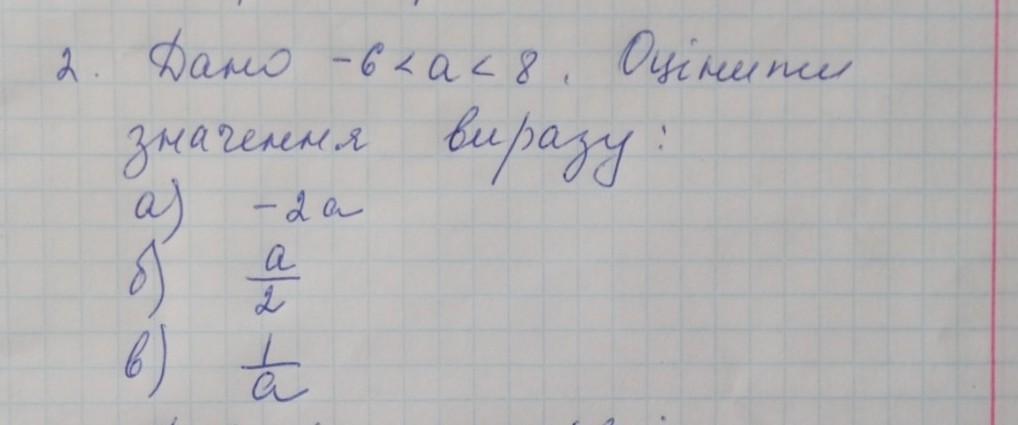 2. Дано -6 < a < 8. Оцінити
значення виразу:
а) -2a
б) a/2
в) 1/a